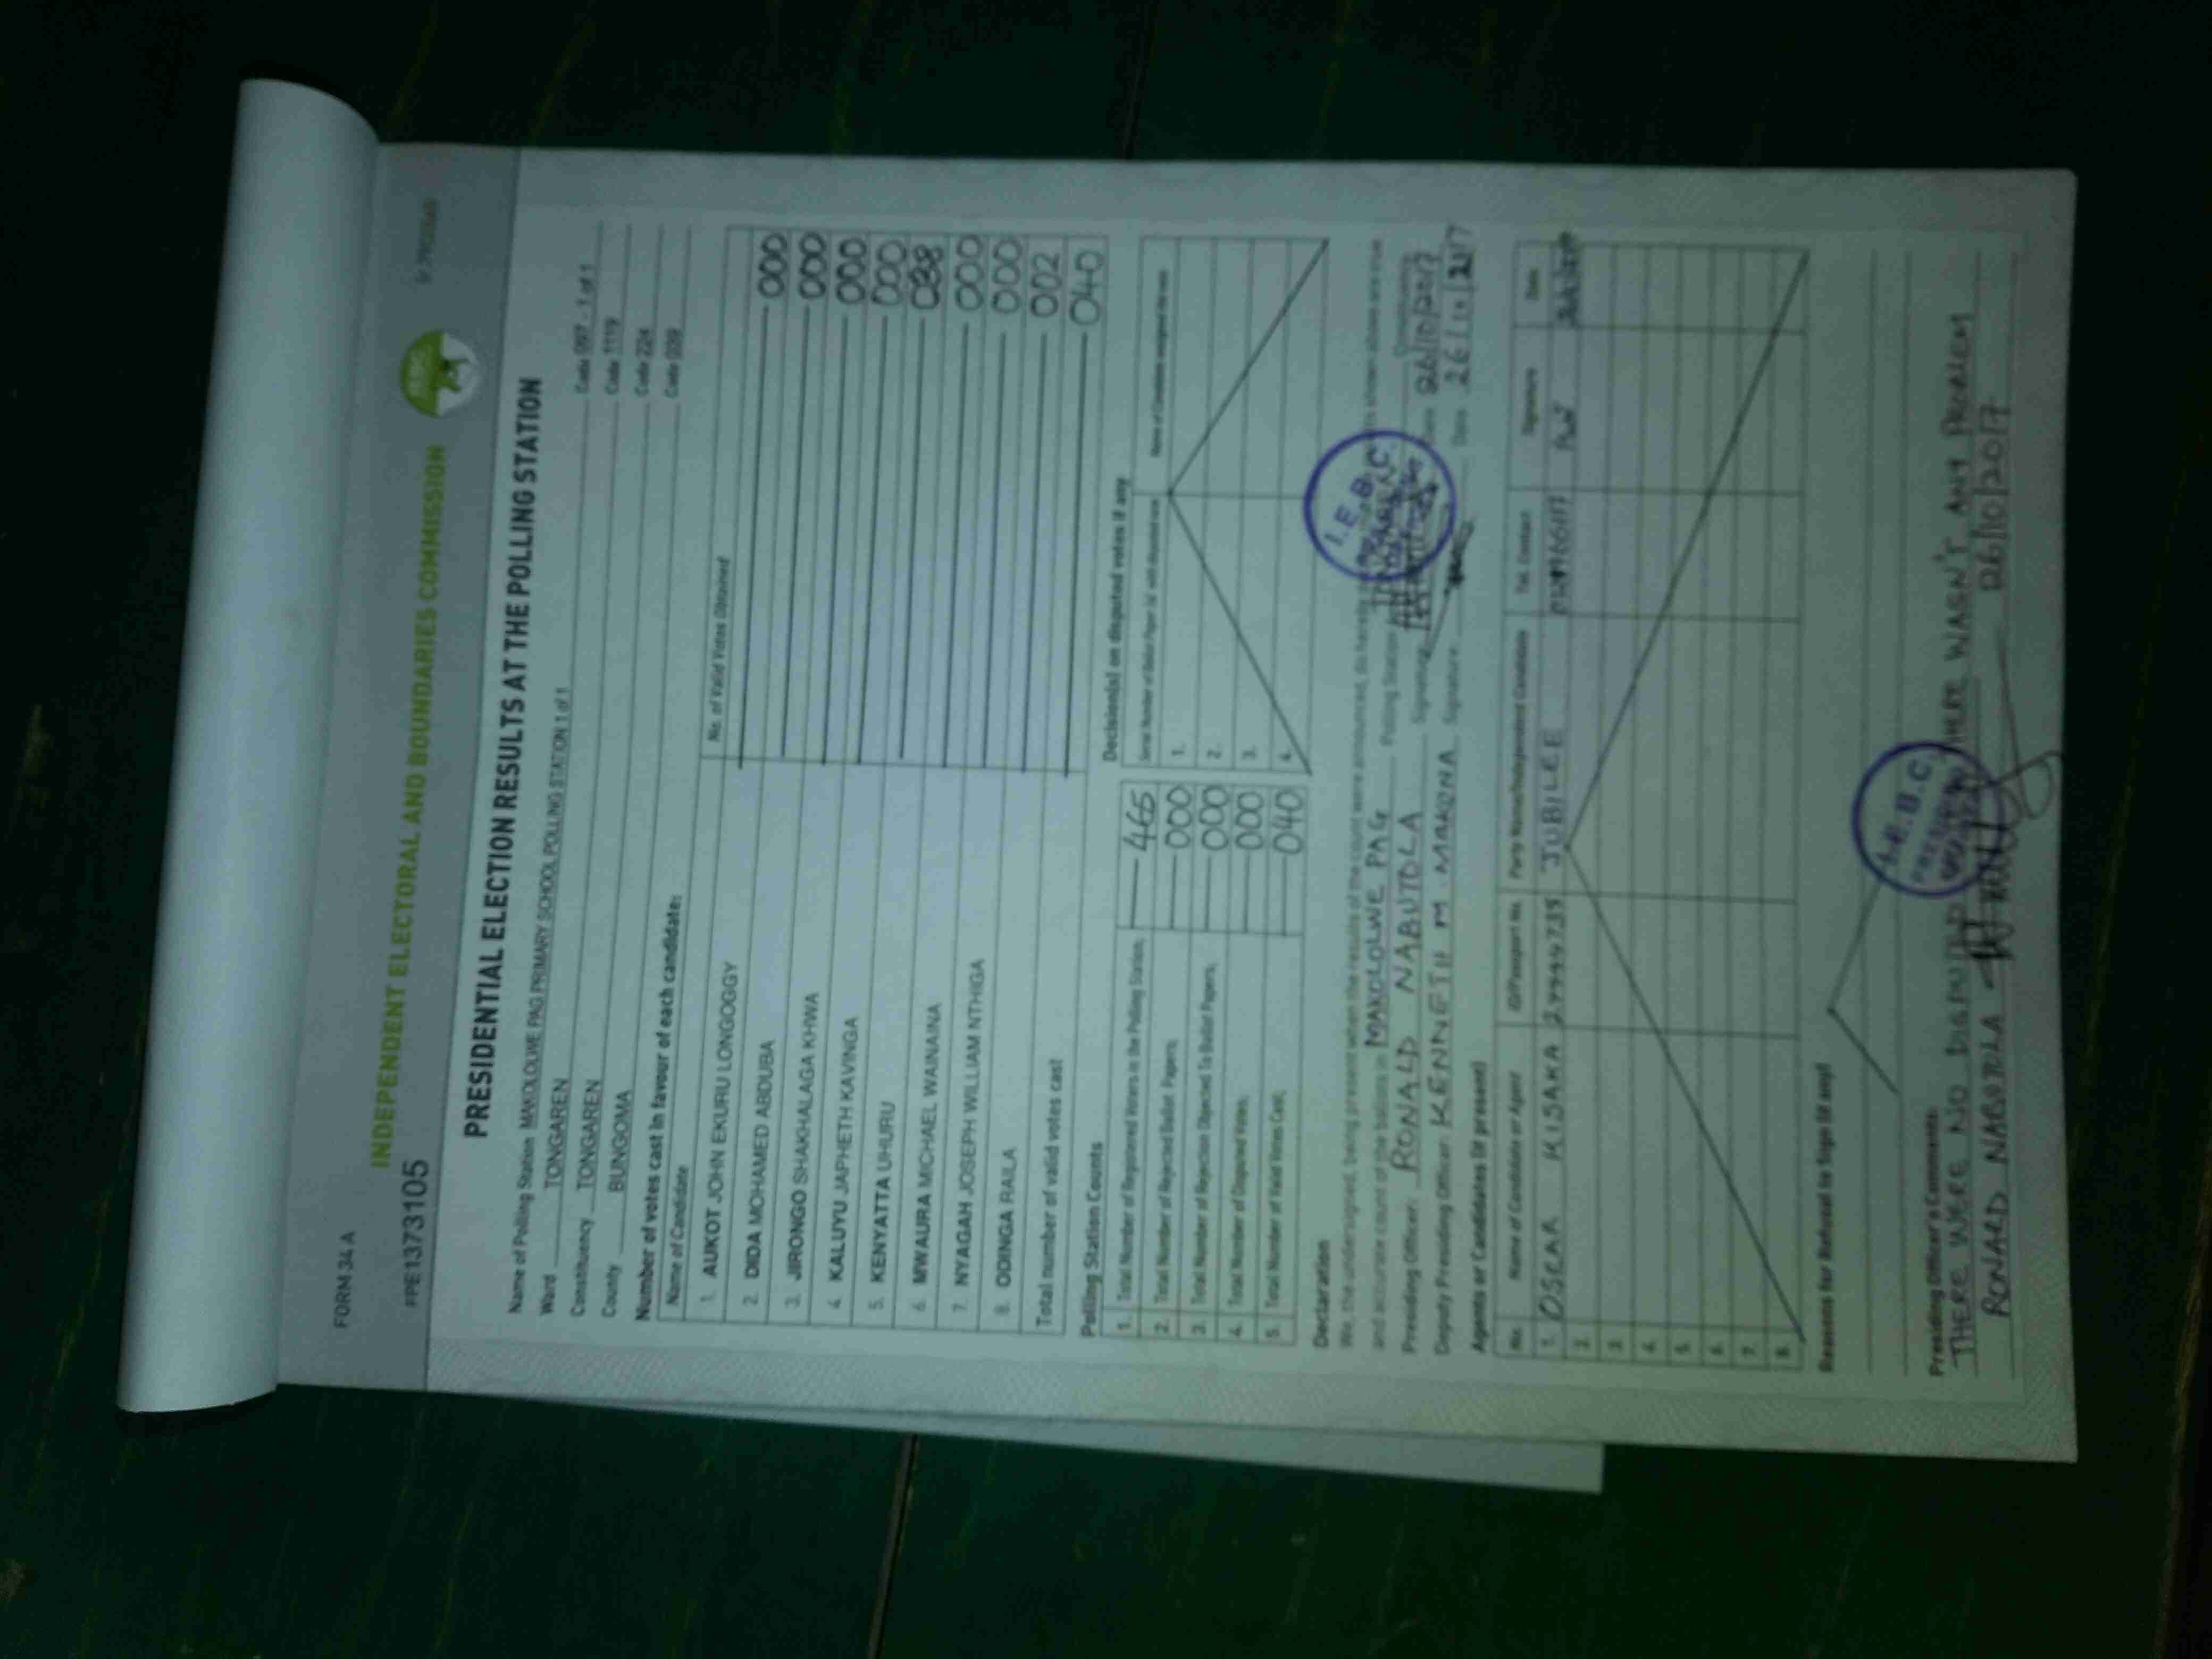 FORM 34 A
INDEPENDENT ELECTORAL AND BOUNDARIES COMMISSION
PRE1373105
PRESIDENTIAL ELECTION RESULTS AT THE POLLING STATION
Name of Polling Station MAKOLOLWE PAG PRIMARY SCHOOL POLLING STATION 1 of 1 Code 097 - 1 of 1
Ward TONGAREN Code 1119
Constituency TONGAREN Code 224
County BUNGOMA Code 039
Number of votes cast in favour of each candidate:
Name of Candidate No. of Valid Votes Obtained
1. AUKOT JOHN EKURU LONGOGGY 000
2. DIDA MOHAMED ABDUBA 000
3. JIRONGO SHAKHALAGA KHWA 000
4. KALUYU JAPHETH KAVINGA 000
5. KENYATTA UHURU 038
6. MWAURA MICHAEL WAINAINA 000
7. NYAGAH JOSEPH WILLIAM NTHIGA 000
8. ODINGA RAILA 002
Total number of valid votes cast 040
Polling Station Counts
1. Total Number of Registered Voters in the Polling Station; 465
2. Total Number of Rejected Ballot Papers; 000
3. Total Number of Rejection Objected To Ballot Papers; 000
4. Total Number of Disputed Votes; 000
5. Total Number of Valid Votes Cast; 040
Decision(s) on disputed votes if any
1.
2.
3.
4.
Declaration
We, the undersigned, being present when the results of the count were announced, do hereby shown above are true
and accurate count of the ballots in MAKOLOLWE PAG Polling Station
Presiding Officer: RONALD NABUTOLA Signature Date 26/10/2017
Deputy Presiding Officer: KENNETH M MAKONA Signature Date 26/10/2017
I.E.B.C.
Agents or Candidates (if present)
No. Name of Candidate or Agent ID/Passport No. Party Name/Independent Candidate Tel. Contact Signature Date
1. OSCAR KISAKA JUBILEE
2.
3.
4.
5.
6.
7.
8.
Reasons for Refusal to Sign (if any)
I.E.B.C
Presiding Officer's Comments:
THERE WERE NO THERE WASN'T ANY PROBLEM
RONARD NABUTOLA 26/10/2017